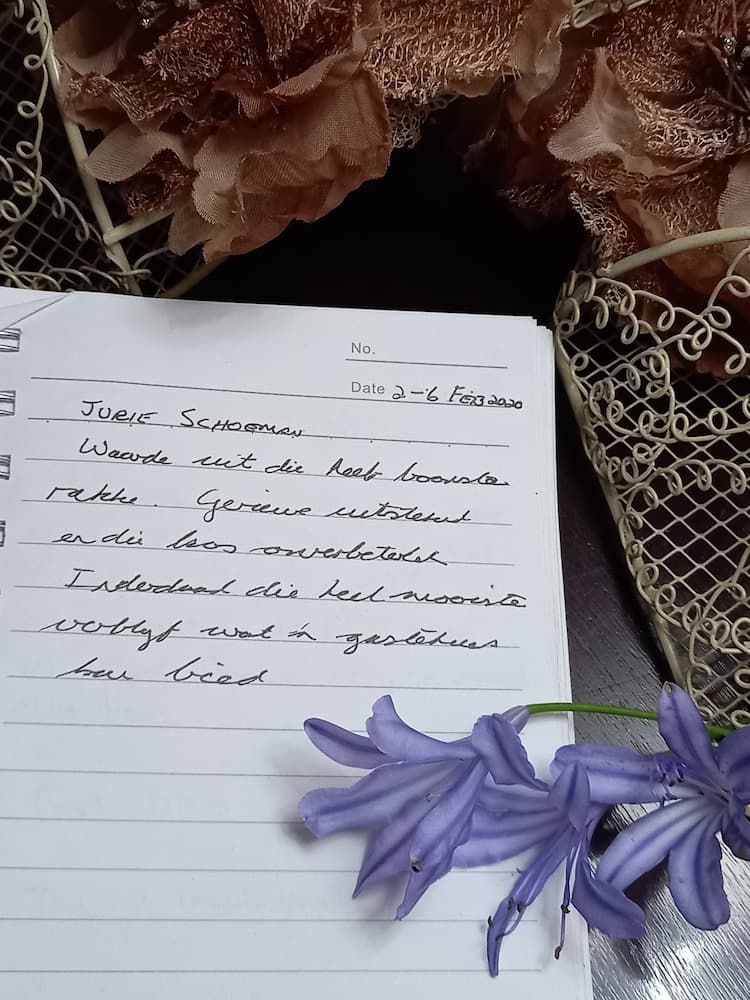 No.
Date 2-6 FEB 2020
JURIE SCHOEMAN
Waarde uit die heel boonste
rakke. Geriewe uitstekend
en die kos onverbeterlik
Inderdaad die heel mooiste
verblyf wat 'n gastehuis
kan bied